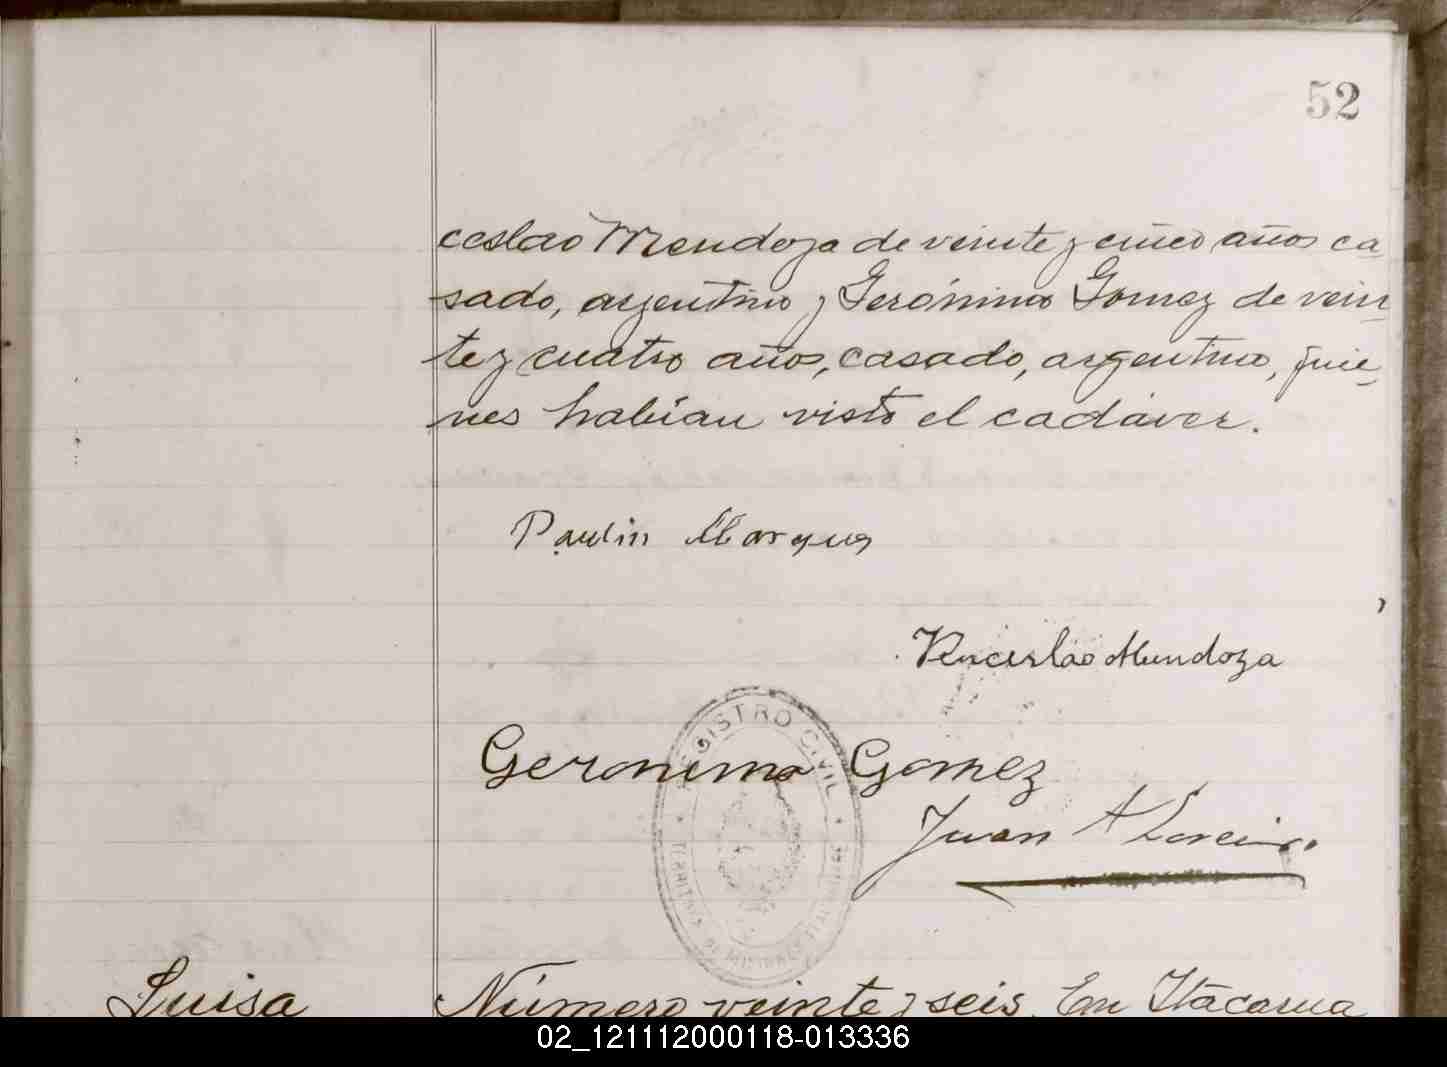 52
ceslao Mendoza de veinte y cinco años ca
sado, argentino y Gerónimo Gomez de vein
te y cuatro años, casado, argentino, quie
nes habían visto el cadáver.
Paulin Marques
Venceslao Mendoza
REGISTRO CIVIL
Geronimo Gomez
Juan A
Luisa
Número veinte y seis. En Itacarua
02_121112000118-013336